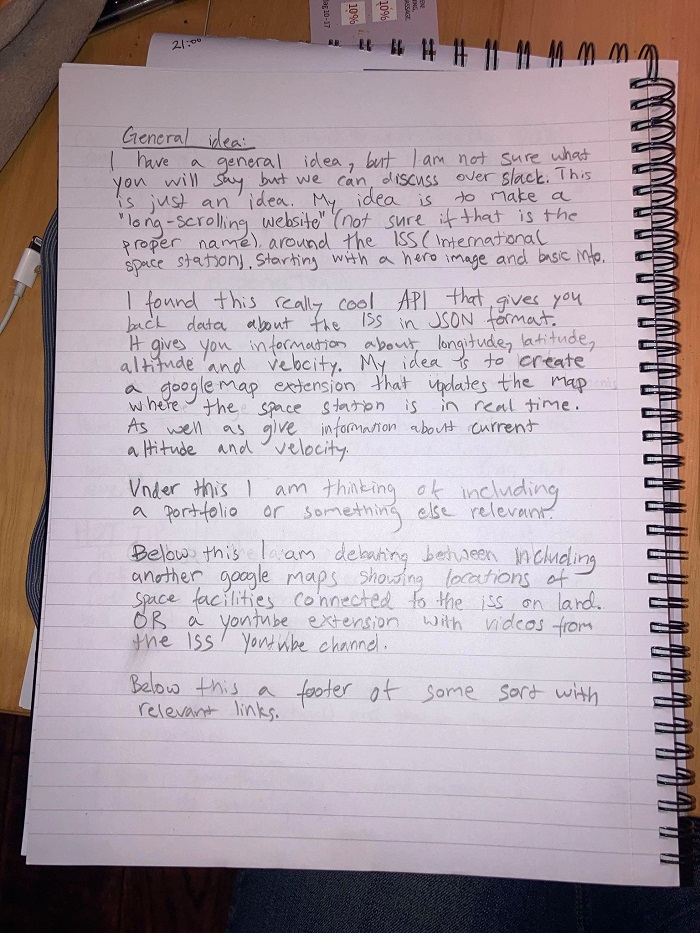 21:00
10%
10%
General idea:
I have a general idea, but I am not sure what
you will say but we can discuss over slack. This
is just an idea. My idea is to make a
"long-scrolling website" (not sure if that is the
proper name) around the ISS (International
space station). Starting with a hero image and basic info.
I found this really cool API that gives you
back data about the ISS in JSON format.
It gives you information about longitude, latitude,
altitude and velocity. My idea is to create
a google map extension that updates the map
where the space station is in real time.
As well as give information about current
altitude and velocity.
Under this I am thinking of including
a portfolio or something else relevant.
Below this I am debating between including
another google maps showing locations of
space facilities connected to the iss on land.
OR a youtube extension with videos from
the ISS youtube channel.
Below this a footer of some sort with
relevant links.